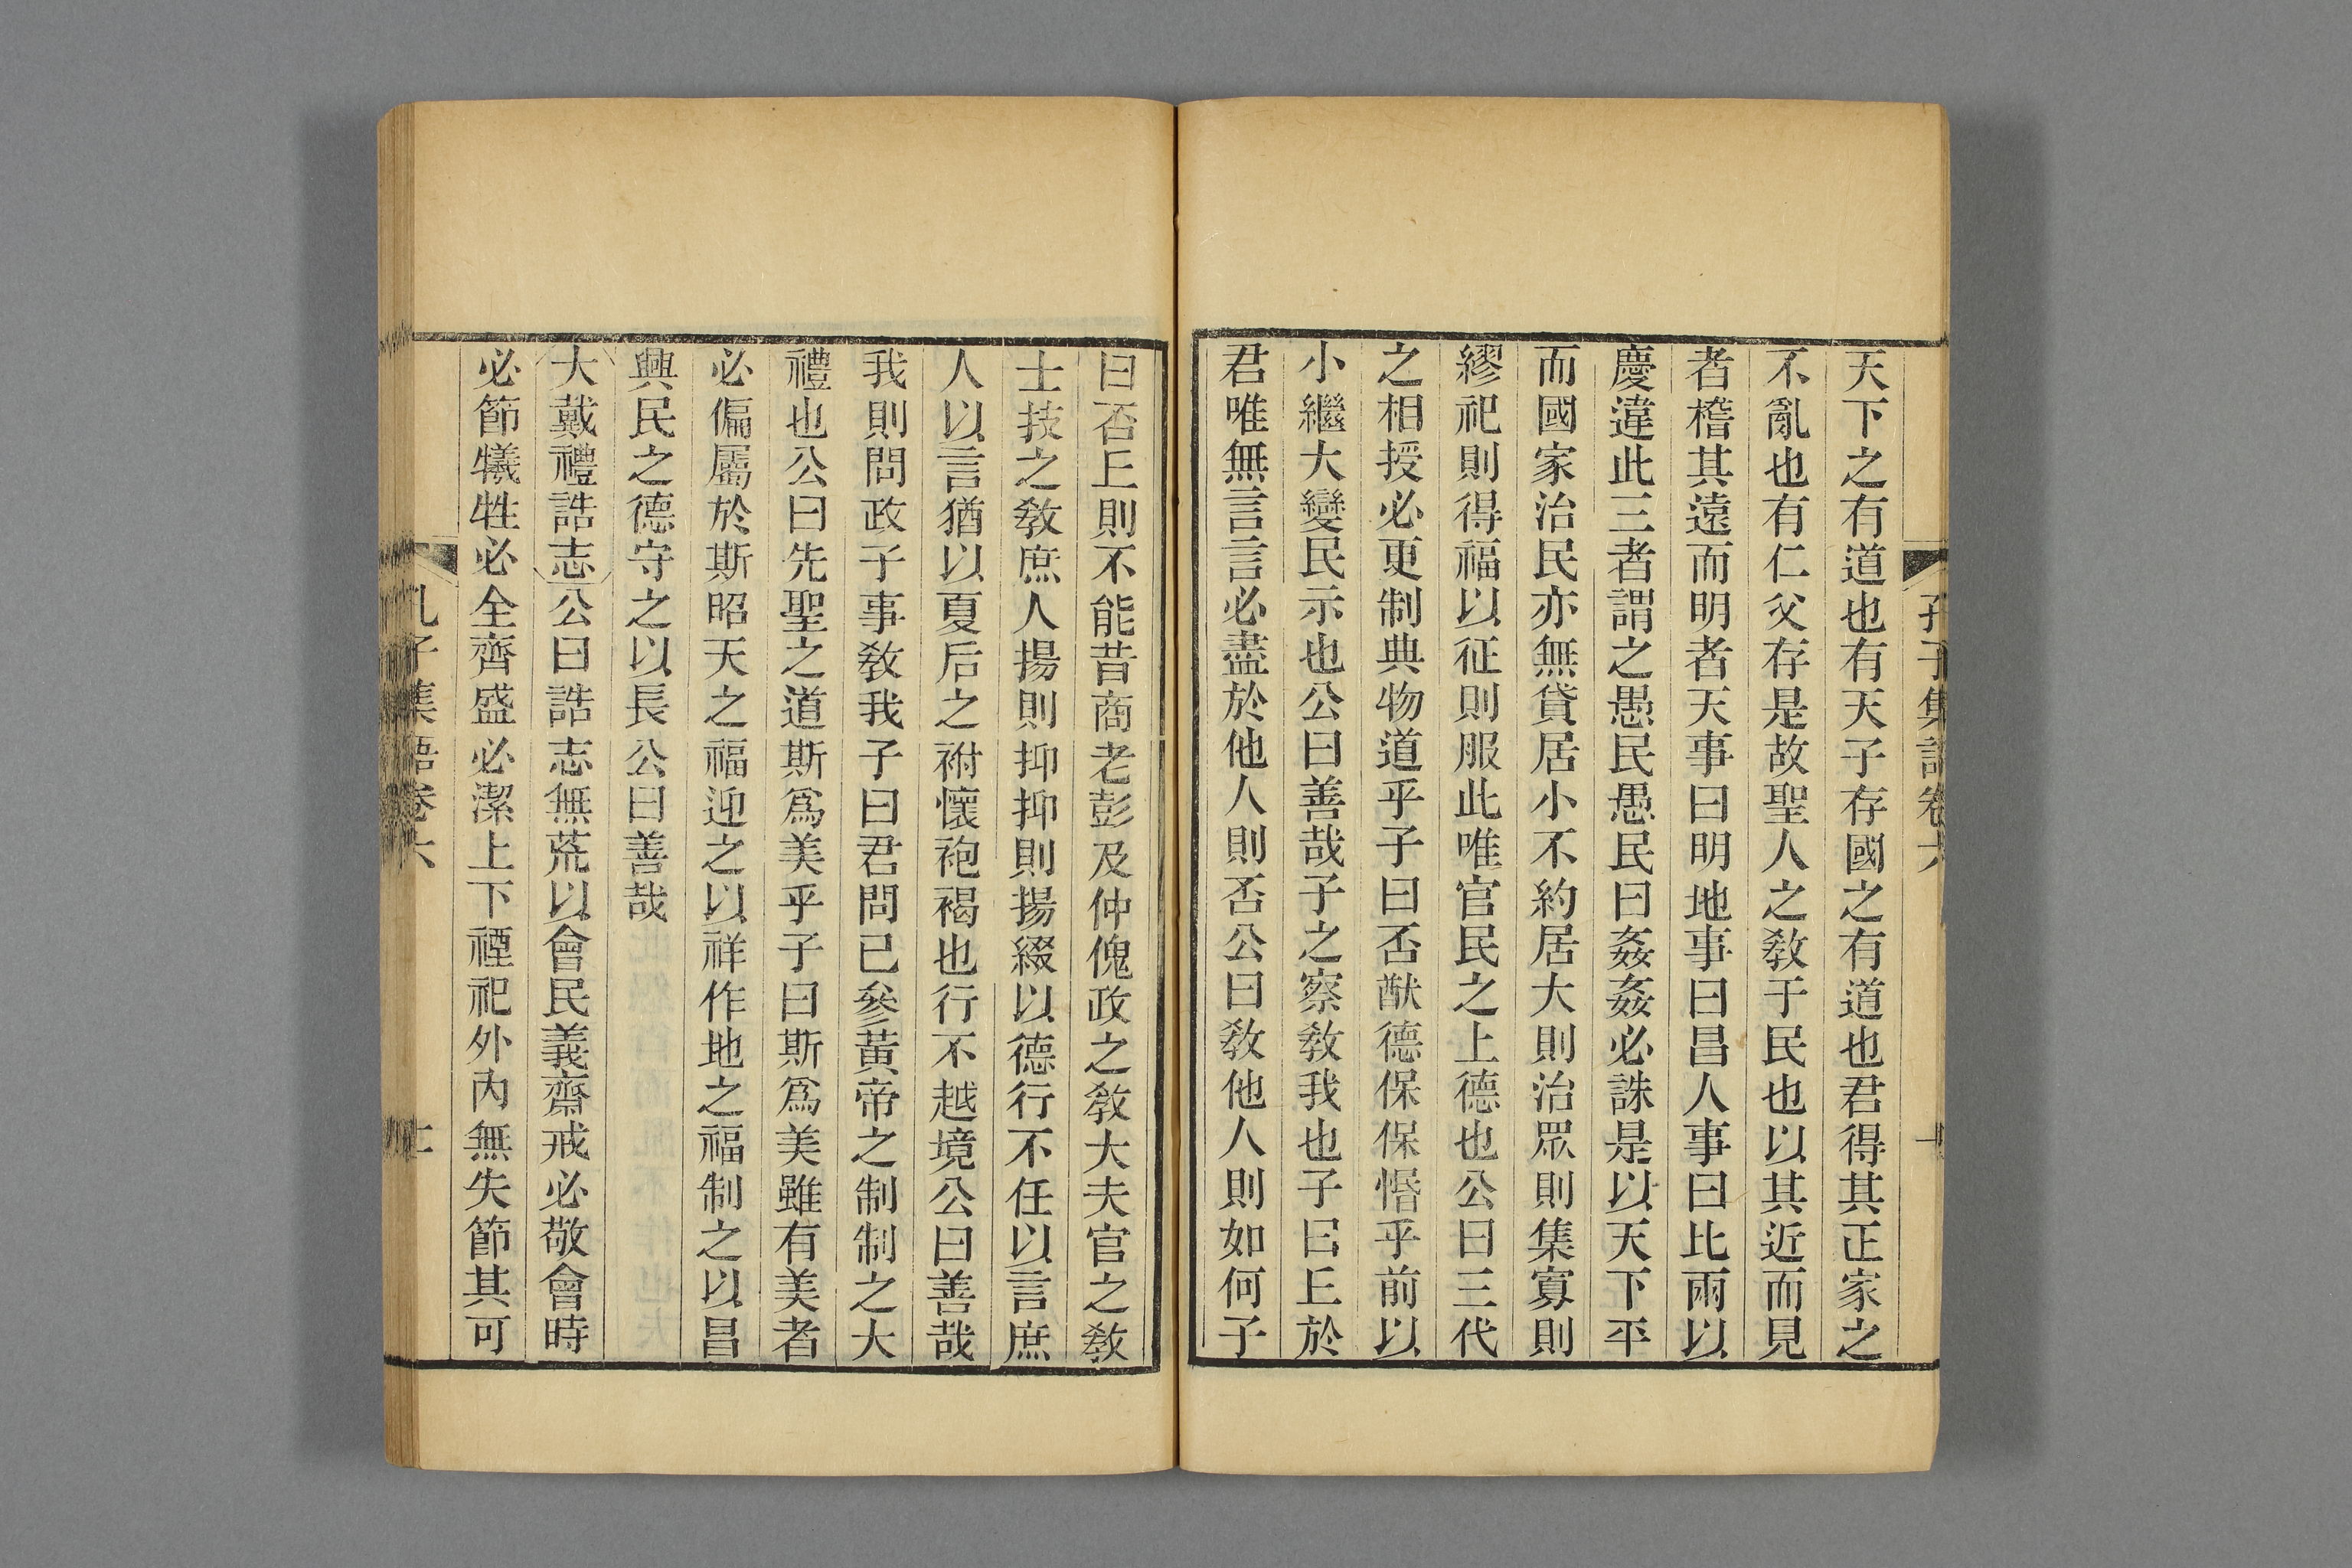 孔子集語卷六
天下之有道也有天子存國之有道也君得其正家之
不亂也有仁父存是故聖人之敎于民也以其近而見
者稽其遠而明者天事曰明地事曰昌人事曰比兩以
慶違此三者謂之愚民愚民曰姦姦必誅是以天下平
而國家治民亦無貸居小不約居大則治眾則集寡則
繆祀則得福以征則服此唯官民之上德也公曰三代
之相授必更制典物道乎子曰否猷德保保惛乎前以
小繼大變民示也公曰善哉子之察敎我也子曰丘於
君唯無言言必盡於他人則否公曰敎他人則如何子
曰否丘則不能昔商老彭及仲傀政之敎大夫官之敎
士技之敎庶人揚則抑抑則揚綴以德行不任以言庶
人以言猶以夏后之祔懷袍褐也行不越境公曰善哉
我則問政子事敎我子曰君問已參黃帝之制制之大
禮也公曰先聖之道斯爲美乎子曰斯爲美雖有美者
必偏屬於斯昭天之福迎之以祥作地之福制之以昌
興民之德守之以長公曰善哉
大戴禮誥志公曰誥志無荒以會民義齋戒必敬會時
必節犧牲必全齊盛必潔上下禋祀外內無失節其可
孔子集語卷六